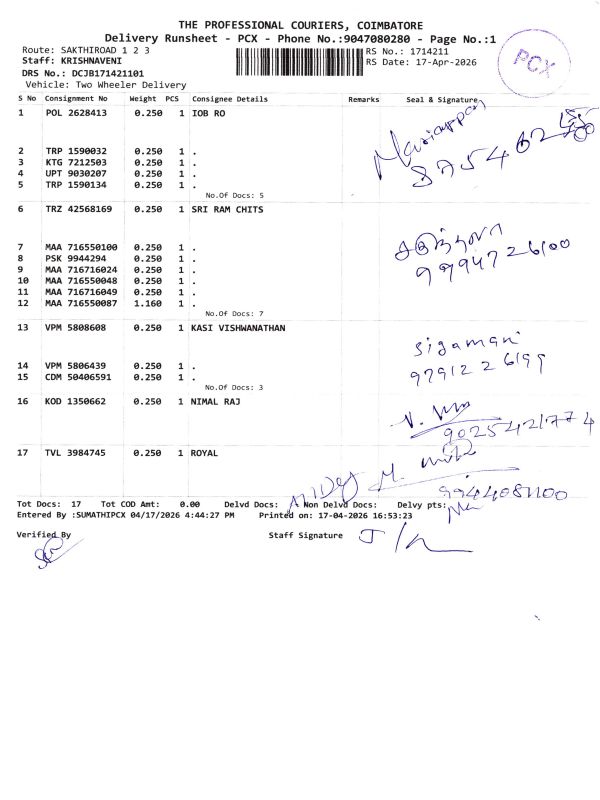 THE PROFESSIONAL COURIERS, COIMBATORE
Delivery Runsheet - PCX - Phone No.:9047080280 - Page No.:1
Route: SAKTHIROAD 1 2 3
RS No.: 1714211
Staff: KRISHNAVENI
RS Date: 17-Apr-2026
PCX
DRS No.: DCJB171421101
Vehicle: Two Wheeler Delivery
S No Consignment No Weight PCS Consignee Details Remarks Seal & Signature
1 POL 2628413 0.250 1 IOB RO
Mariappan
2 TRP 1590032 0.250 1 .
3 KTG 7212503 0.250 1 .
4 UPT 9030207 0.250 1 .
5 TRP 1590134 0.250 1 .
No.Of Docs: 5
6 TRZ 42568169 0.250 1 SRI RAM CHITS
7 MAA 716550100 0.250 1 .
8 PSK 9944294 0.250 1 .
9 MAA 716716024 0.250 1 .
10 MAA 716550048 0.250 1 .
11 MAA 716716049 0.250 1 .
12 MAA 716550087 1.160 1 .
9994726100
No.Of Docs: 7
13 VPM 5808608 0.250 1 KASI VISHWANATHAN
Sigamani
14 VPM 5806439 0.250 1 .
15 CDM 50406591 0.250 1 .
9791226199
No.Of Docs: 3
16 KOD 1350662 0.250 1 NIMAL RAJ
9025421774
17 TVL 3984745 0.250 1 ROYAL
9944081100
Tot Docs: 17 Tot COD Amt: 0.00 Delvd Docs: Non Delvd Docs: Delvy pts:
Entered By :SUMATHIPCX 04/17/2026 4:44:27 PM Printed on: 17-04-2026 16:53:23
Verified By Staff Signature